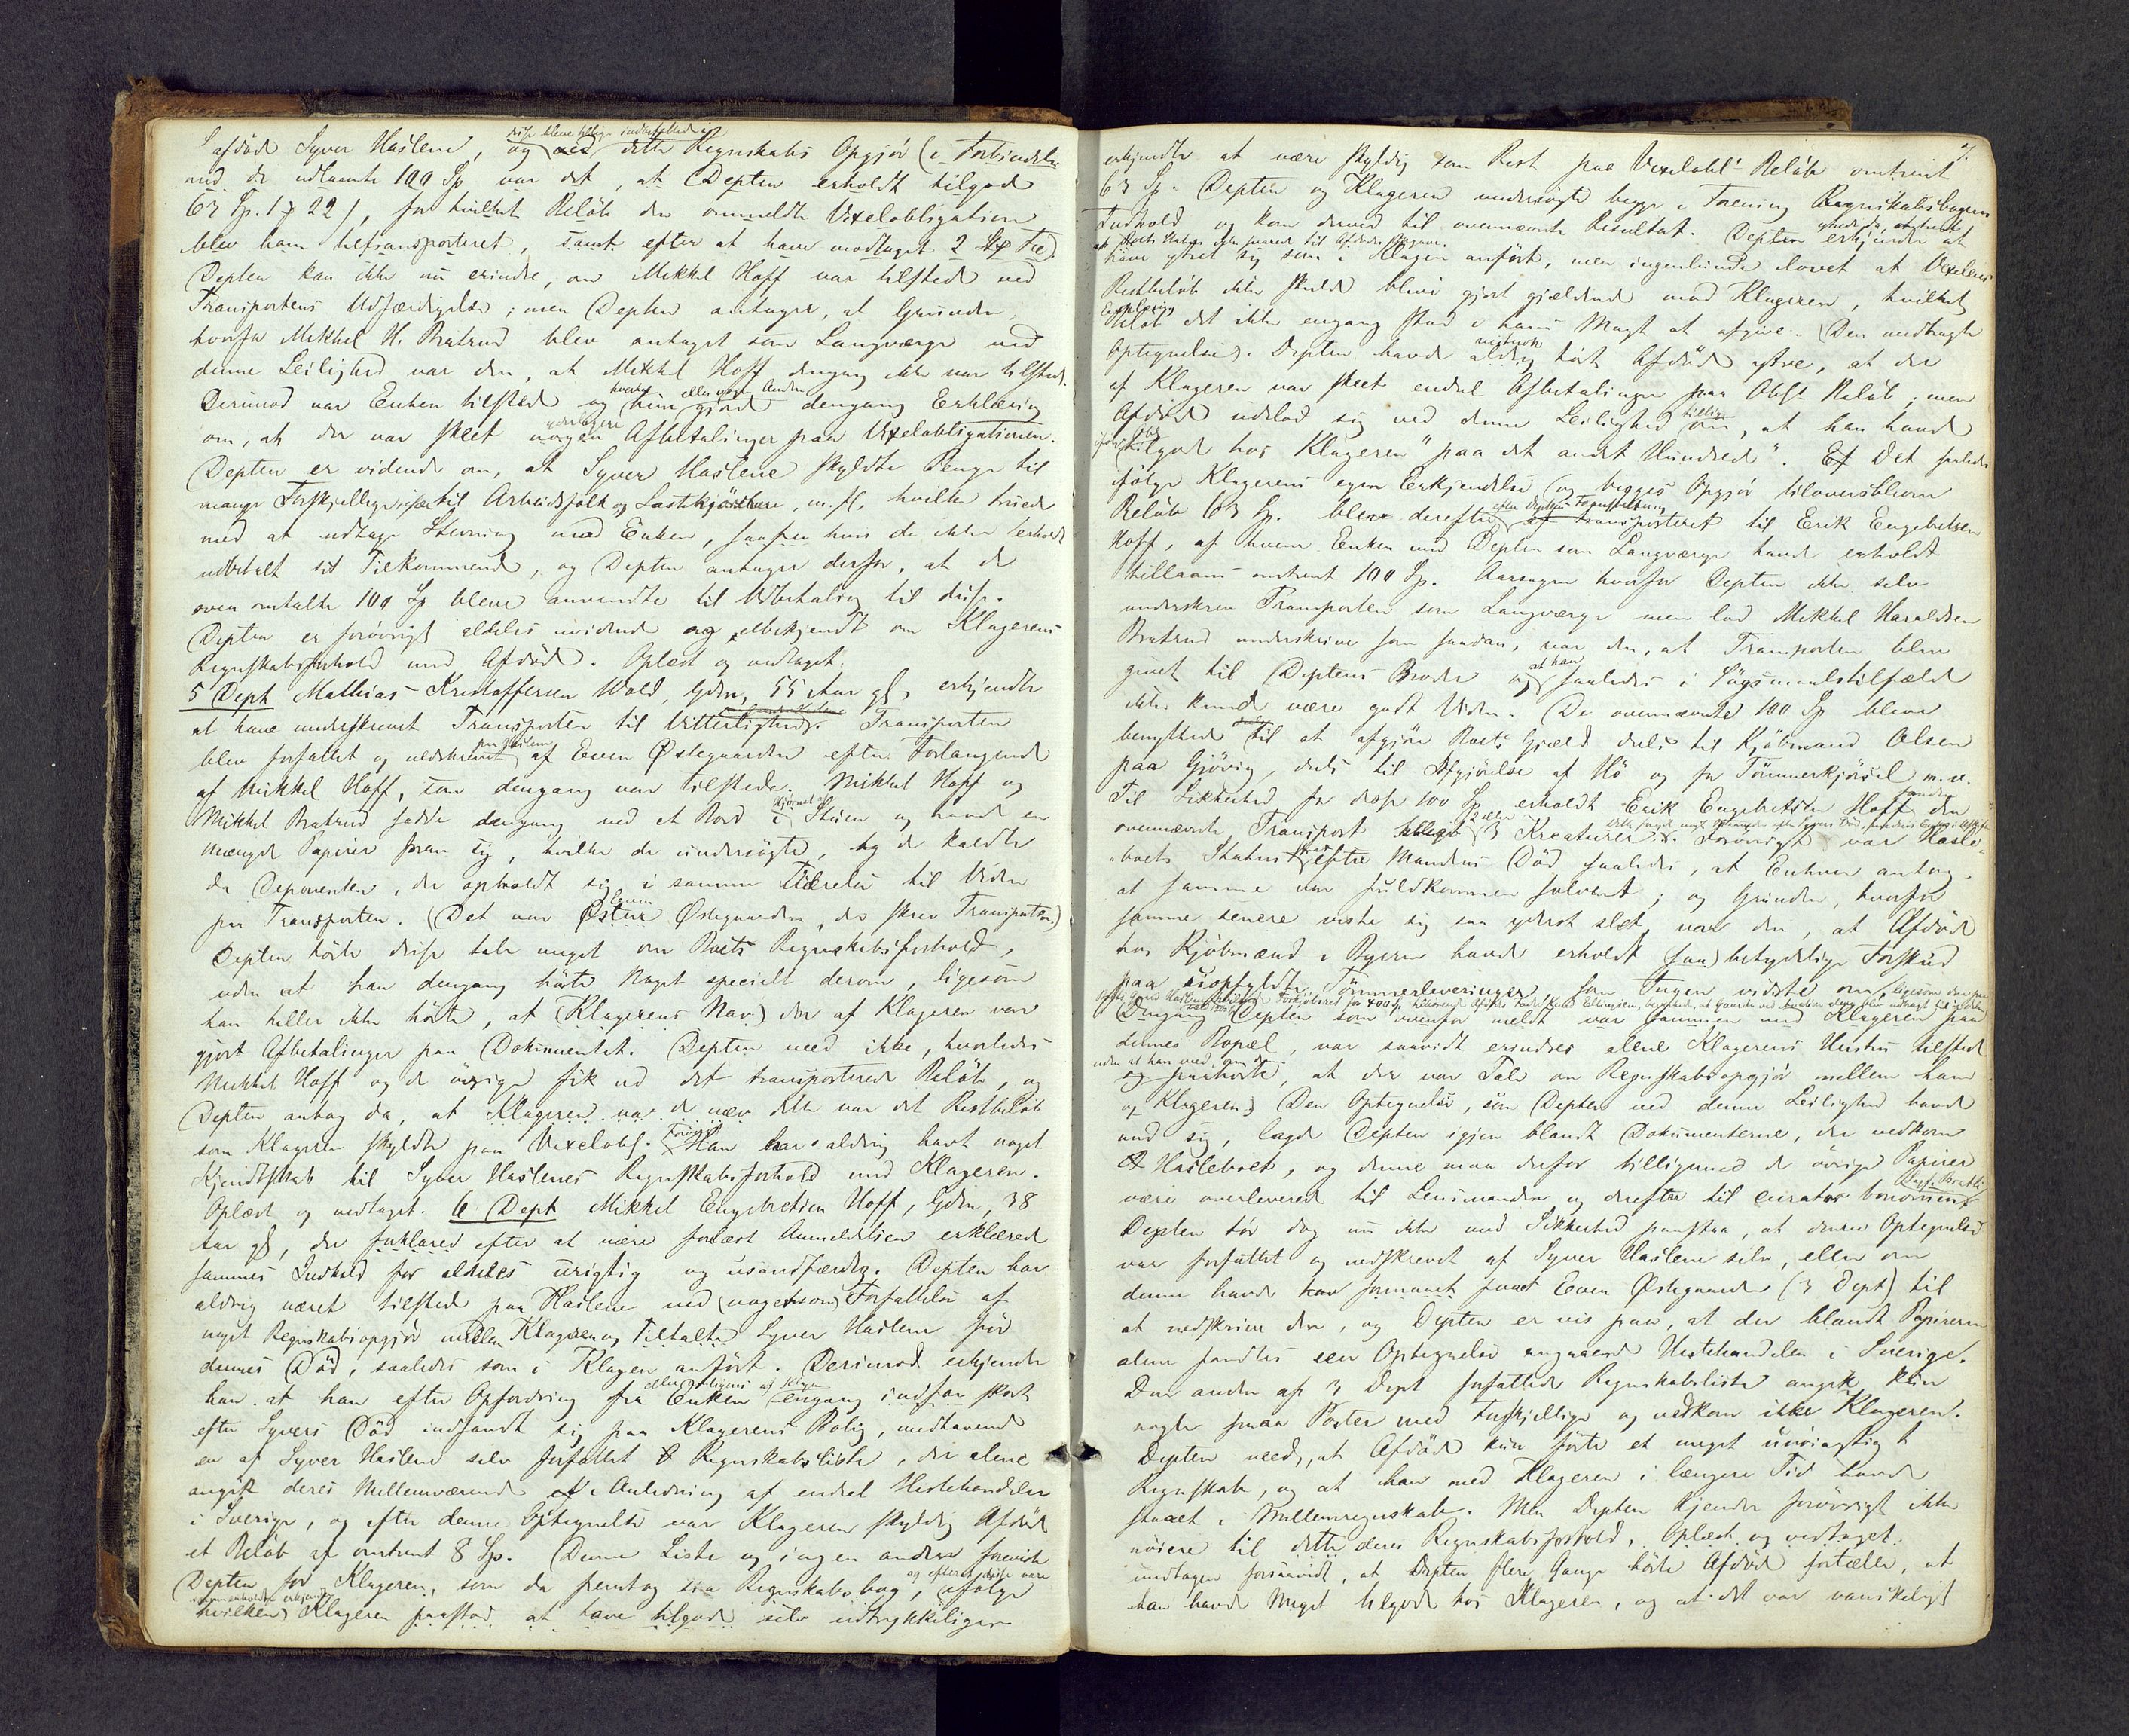 afdöde Syver Haslene, og ved dette Regnskabs Opgjör (i Forbindelse
disse bleve tillige indbefattede i
med de udlaante 100 Sp var det, at Depten erholdt tilgode
63 Sp. 1 22), for hvilket Belöb den ommeldte Vixelobligation
blev ham transporteret, samt efter at have modtaget 2
Depten kan ikke nu erindre, om Mikkel Hoff var tilstede ved
Transportens Udfærdigelse; men Depten antager, at Grunden,
hvorfor Mikkel H. Bratrud blev antaget som Laugværge ved
denne Leilighed var den, at Mikkel Hoff dengang ikke var tilstede.
Derimod var Enken tilstede og hun gjorde dengang Erklæring
hverken eller nogen Anden
om, at der var skeet nogen Afbetalinger paa Vixelobligationen.
yderligere
Depten er vidende om, at Syver Haslene skyldte Penge til
mange Forskjellige, især til Arbeidsfolk og Lastkjörere, m. fl. hvilke truede
med at udtage Stevning mod Enken, saafremt de ikke erholdt
udbetalt sit Tilkommende, og Depten antager derfor, at de
oven omtalte 100 Sp bleve anvendte til Udbetaling til disse.
Depten er forövrigt aldeles uvidende og ubekjendt om Klagerens
Regnskabsforhold med Afdöde. Oplæst og vedtaget.
5 Dept Mathias Kristoffersen Wold, Gdm, 55 Aar gl, erkjendte
at have underskrevet Transporten til Vitterlighed. Transporten
blev forfattet og nedskrevet af Even Østegaarden efter Forlangende
paa Haslene
af Mikkel Hoff, som dengang var tilstede. Mikkel Hoff og
Mikkel Bratrud sadde dengang ved et Bord i Stuen og havde en
Hjörnet af
Mængde Papirer foran sig, hvilke de undersögte, og de kaldte
da Deponenten, der opholdt sig i samme Værelse til Viden
paa Transporten. (Det var Østen Østegaarden, der skrev Transporten)
Even
Depten hörte disse tale meget om Boets Regnskabsforhold,
uden at han dengang hörte Noget specielt derom, ligesom
han heller ikke hörte, at (Klagerens Nav) der af Klageren var
gjort Afbetalinger paa Dokumentet. Depten veed ikke, hvorledes
Mikkel Hoff og de övrige fik ud det transporterede Belöb, og
Depten antog da, at Klageren dette var det Restbelöb
som Klageren skyldte paa Vixelobl. Han har aldrig havt noget
Kjendskab til Syver Haslenes Regnskabsforhold med Klageren.
Oplæst og vedtaget. 6 Dept Mikkel Engebretsen Hoff, Gdm, 38
Aar gl, der forklared efter at være forelæst Anmeldelsen erklærede
sammes Indhold for aldeles urigtig og usandfærdig. Depten har
aldrig været tilstede paa Haslene ved (nogetsom) Forfattelse af
noget Regnskabsopgjör mellem Klageren og Tiltalte Syver Haslene för
dennes Död, saaledes som i Klagen anfört. Derimod erkjendte
han at han efter Opfordring fra Enken engang indfan strax
efter Syvers Död indfandt sig paa Klagerens Bolig, medhavende
en af Syver Haslene selv forfattet Regnskabsliste, der alene
angik deres Mellemværende i Anledning af endel Hestehandeler
i Sverige, og efter denne Optegnelse var Klageren skyldig Afdöde
et Belöb af omtrent 8 Sp. Denne Liste og ingen anden foreviste
Depten for Klageren, som da fremtog sin Regnskabsbog, ifölge
og efterat disse vare
sammenholdte erkjendte
hvilken Klageren paastod at have tilgode selv udtrykkeligen
7.
erkjendte at være skyldig som Rest paa Vixelobl. Belöb omtrent
63 Sp. Depten og Klageren undersögte begge i Forening Regnskabsbogens
Indhold og kom derved til ovennævnte Resultat. Depten erkjender at
have ytret sig som i Klagen anfört, men ingenlunde lovet at Vixelens
Restbelöb ikke skulde blive gjort gjældende mod Klageren, hvilket
det ikke engang stod i hans Magt at afgive. (Den medbragte
Optegnelse). Depten havde aldrig hört Afdöde ytre, at der
af Klageren var skeet endel Afbetalinger paa Oblst Belöb; men
Afdöde udlod sig ved denne Leilighed om, at han havde
tillige
tilgode hos Klageren "paa det andet Hundrede". Det saaledes
ifölge Klagerens egen Erkjendelse og begges Opgjör tiloversblevne
Belöb 63 Sp. blev derefter transporteret til Erik Engebretsen
efter Deptens Foranstaltning
Hoff, af hvem Enken med Depten som Laugværge havde erholdt
tillaans omtrent 100 Sp. Aarsagen hvorfor Depten ikke selv
underskrev Transporten som Laugværge men lod Mikkel Haraldsen
Bratrud underskrive som saadan, var den, at Transporten blev
givet til Deptens Broder og saaledes i Sögsmaalstilfælde
at han
ikke kunde være godt Viden. De ovennævnte 100 Sp bleve
benyttede til at afgjöre Boets Gjæld dels til Kjöbmand Olsen
paa Gjövig, dels til Afgjörelse af Hö og for Tömmerkjörsel m. v.
Til Sikkerhed for disse 100 Sp erholdt Erik Engebretsen Hoff den
ovennævnte Transport tilligemed 3 Kreaturer. Forövrigt var Hasle-
2 eller
boets Status efter Mandens Död saaledes, at Enhver antog,
at samme var fuldkommen solvent; og Grunden, hvorfor
samme senere viste sig saa yderst slet, var den, at Afdöde
hos Kjöbmænd i Byerne havde erholdt (saa) betydelige Forskud
paa uopfyldte Tömmerleveringer, som Ingen vidste om,
Dengang Depten som ovenfor meldt var sammen med Klageren paa
dennes Bopæl, var saavidt erindres alene Klagerens Hustru tilstede
og paahörte, at der var Tale om Regnskabsopgjör mellem ham
og Klageren. Den Optegnelse, som Depten ved denne Leilighed havde
med sig, lagde Depten igjen blandt Dokumenterne, der vedkom
Hasleboet, og denne maa derfor tilligemed de övrige Papirer
være overleveret til Lensmanden og derefter til curator bonorum
Depten tör dog nu ikke med Sikkerhed paastaa, at denne Optegnelse
var forfattet og nedskrevet af Syver Haslene selv, eller om
denne havde formaaet Even Østegaarden (3 Dept) til
at nedskrive den, og Depten er vis paa, at der blandt Papirerne
alene fandtes een Optegnelse angaaende Hestehandelen i Sverige.
Den anden af 3 Dept forfattede Regnskabsliste angik kun
nogle smaa Poster med Forskjellige og vedkom ikke Klageren.
Depten veed, at Afdöde kun förte et meget unöiagtigt
Regnskab, og at han med Klageren i længere Tid havde
staaet i Mellemregnskab. Men Depten kjender forövrigt ikke
nöiere til dette deres Regnskabsforhold. Oplæst og vedtaget.
undtagen forsaavidt, at Depten flere Gange hörte Afdöde fortælle, at
han havde Meget tilgode hos Klageren, og at det var vanskeligt